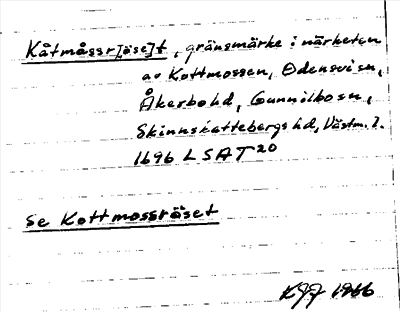 Kåtmåssr[öse]t, gränsmärke i närheten
av Kottmossen, Odensvi sn,
Åkerbo hd, Gunnilbo sn,
Skinnskattebergs hd, Västm. l.
1696 LSA T20
Se Kottmossröset
KJJ 1966